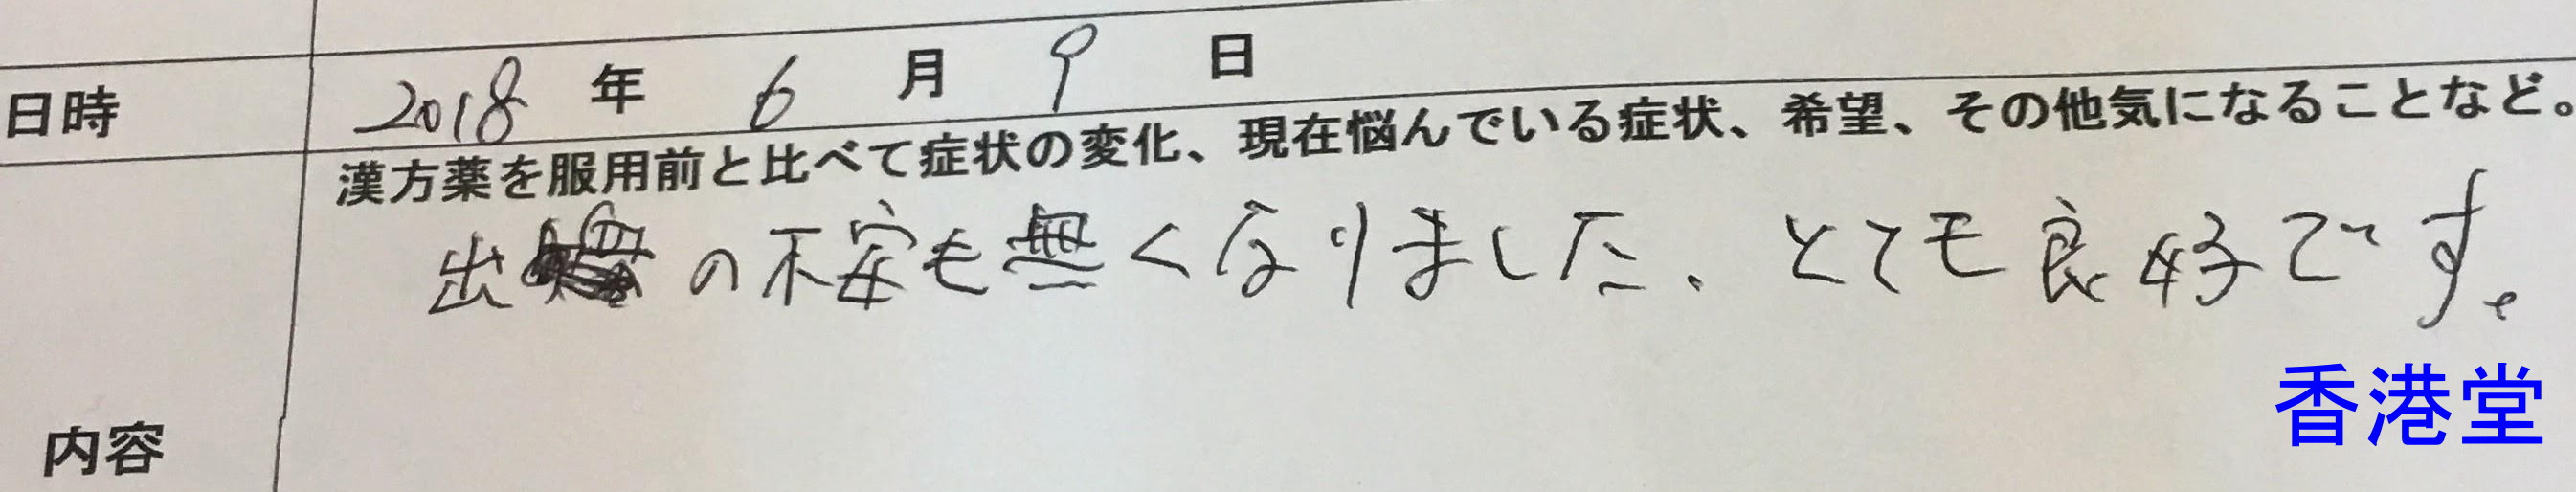 日時 2018 年 6 月 9 日
漢方薬を服用前と比べて症状の変化、現在悩んでいる症状、希望、その他気になることなど。
出 の不安も無くなりました、とても良好です。
香港堂
内容